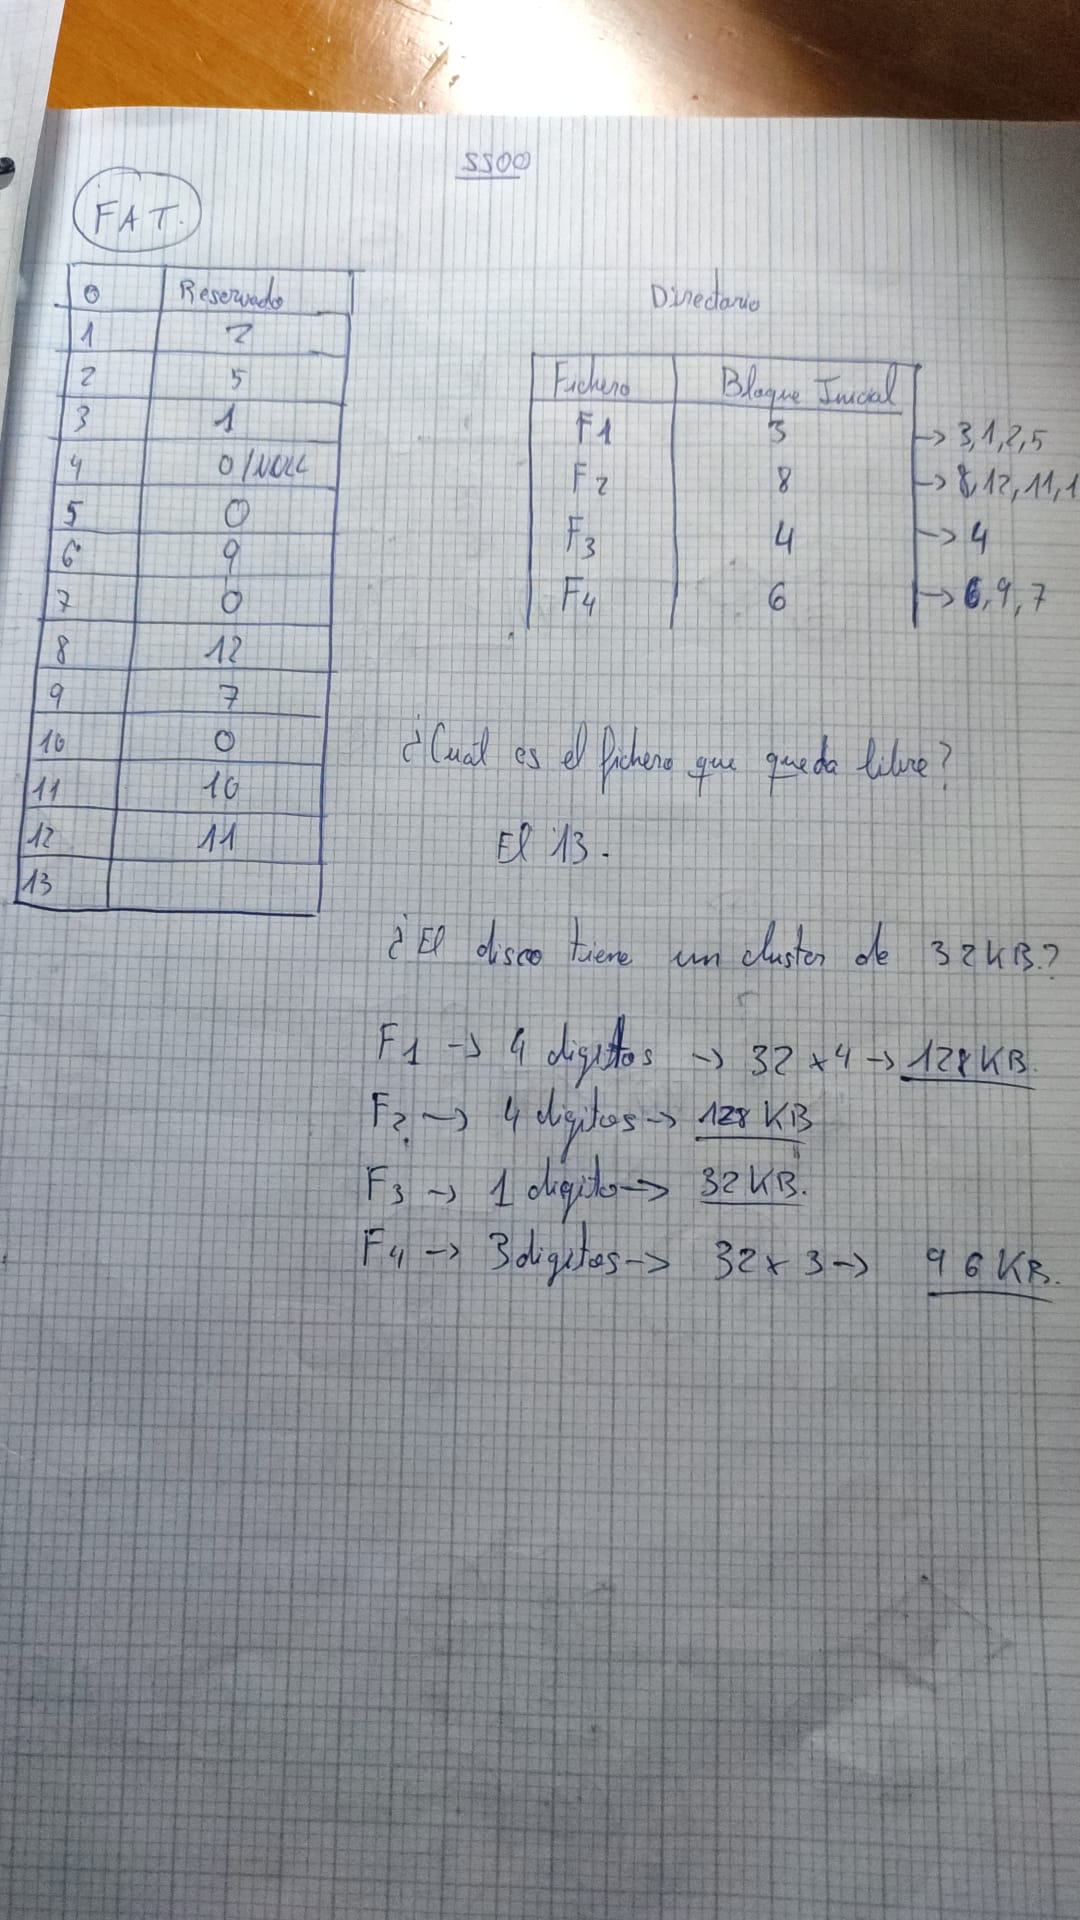 SSOO
FAT.
0 Reservado
1 2
2 5
3 1
4 0/NULL
5 0
6 9
7 0
8 12
9 7
10 0
11 10
12 11
13
Directorio
Fichero Bloque Inicial
F1 3 → 3,1,2,5
F2 8 → 8,12,11,1
F3 4 → 4
F4 6 → 6,9,7
¿Cuál es el fichero que queda libre?
El 13.
¿El disco tiene un cluster de 32KB.?
F1 → 4 digitos → 32 x 4 → 128KB.
F2 → 4 digitos → 128 KB
F3 → 1 digito → 32KB.
F4 → 3 digitos → 32 x 3 → 96KB.